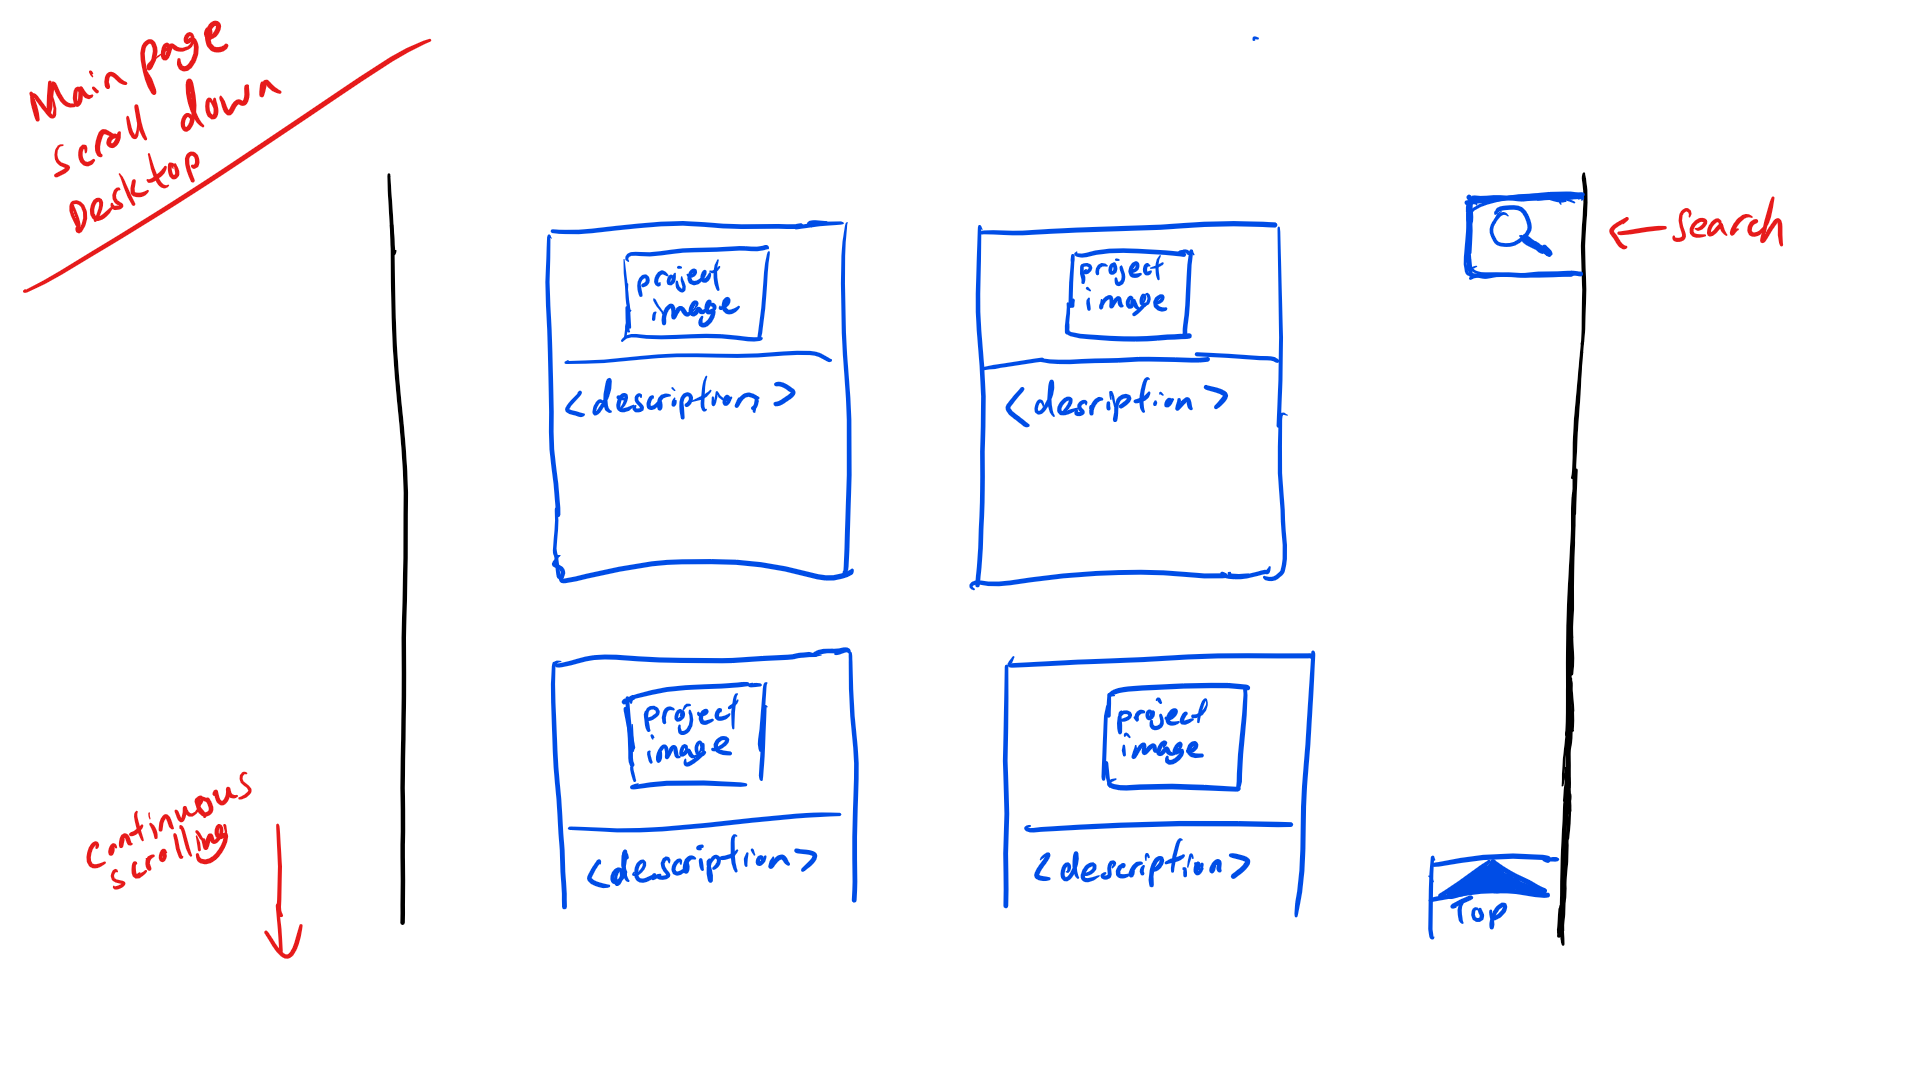 Main page
scroll down
Desktop
← search
project
image
<description>
project
image
<desription>
project
image
<description>
project
image
<description>
Top
Continuous
scrolling